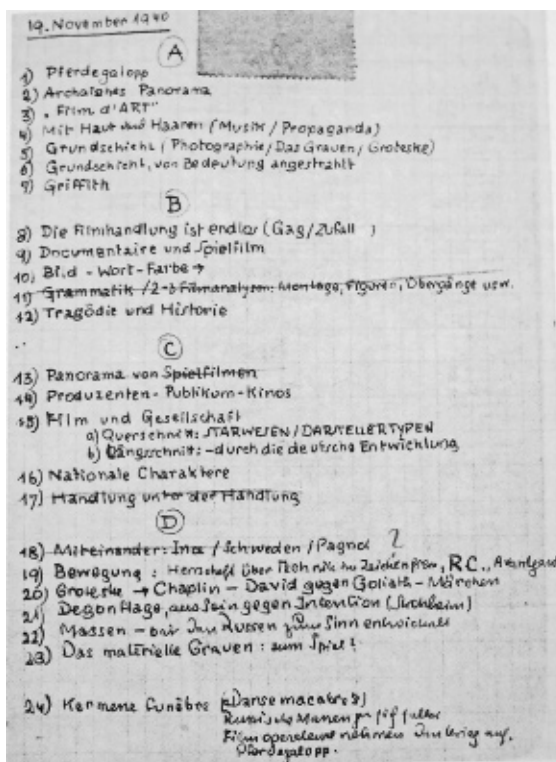 19. November 1940
A
1) Pferdegalopp
2) Archaisches Panorama
3) "Film d'ART"
4) Mit Haut und Haaren (Musik / Propaganda)
5) Grundschicht (Photographie / Das Grauen / Groteske)
6) Grundschicht, von Bedeutung angestrahlt
7) Griffith
B
8) Die Filmhandlung ist endlos (Gag / Zufall )
9) Documentaire und Spielfilm
10) Bild - Wort - Farbe →
11) Grammatik / 2-3 Filmanalysen: Montage, Figuren, Übergänge usw.
12) Tragödie und Historie
C
13) Panorama von Spielfilmen
14) Produzenten - Publikum - Kinos
15) Film und Gesellschaft
a) Querschnitt: STARWESEN / DARSTELLERTYPEN
b) Längsschnitt: - durch die deutsche Entwicklung
16) Nationale Charaktere
17) Handlung unter der Handlung
D
18) Miteinander: Ince / Schweden / Pagnol ?
19) Bewegung: Herrschaft über Technik im Zeichenfilm, R.C., Avantgard
20) Groteske → Chaplin - David gegen Goliath - Märchen
21) Degonflage, aus Sein gegen Intention (Stroheim)
22) Massen - bei den Russen zum Sinn entwickelt
23) Das materielle Grauen: zum Spiel?
24) Kermesse funèbre (Danse macabre)
Russische
Film
Pferdegalopp.